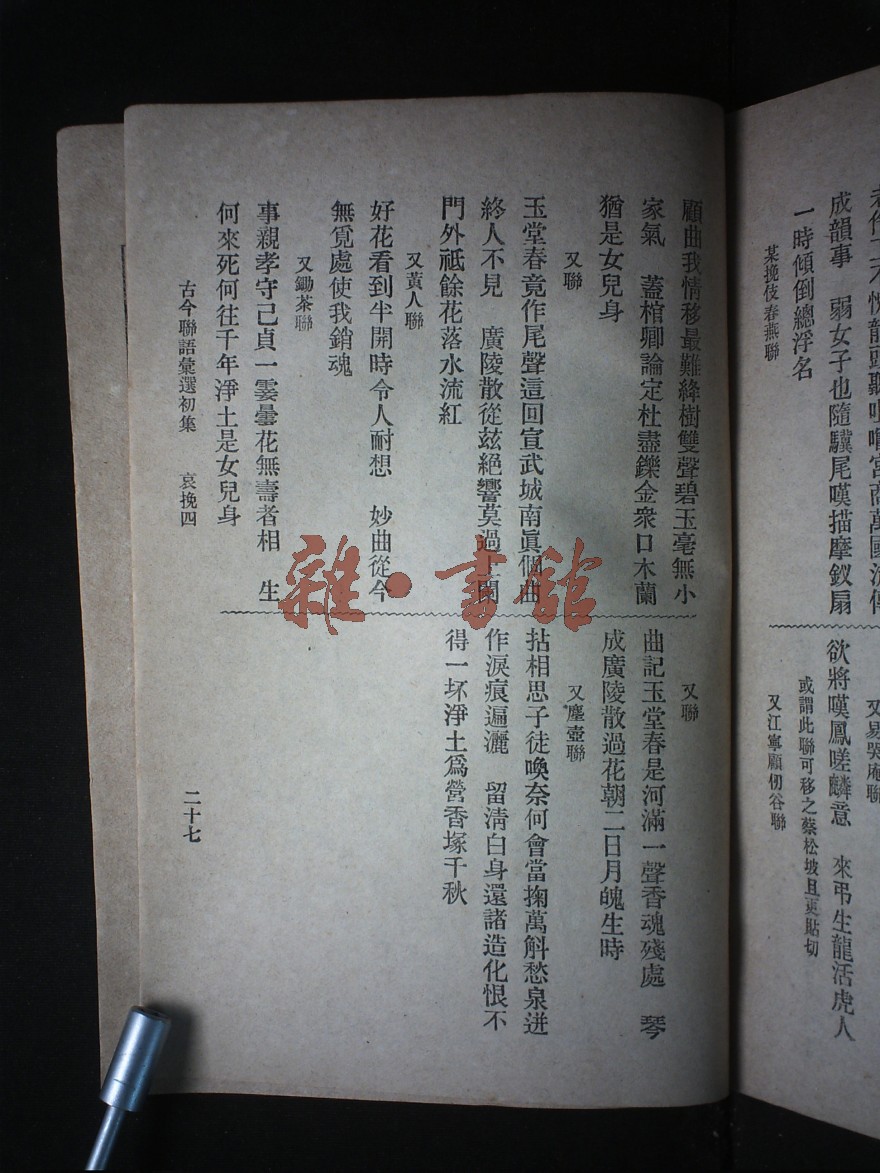 成韻事　弱女子也隨驥尾嘆描摩釵扇
一時傾倒總浮名
某挽伎春燕聯
又易哭庵聯
欲將嘆鳳嗟麟意　來弔生龍活虎人
或謂此聯可移之蔡松坡且更貼切
又江寧顧仞谷聯
顧曲我情移最難絳樹雙聲碧玉毫無小
家氣　蓋棺卿論定杜盡鑠金衆口木蘭
猶是女兒身
又聯
玉堂春竟作尾聲這回宣武城南眞個曲
終人不見　廣陵散從玆絕響莫過士閶
門外祗餘花落水流紅
又黃人聯
好花看到半開時令人耐想　妙曲從今
無覓處使我銷魂
又鋤茶聯
事親孝守己貞一霎曇花無壽者相　生
何來死何往千年淨土是女兒身
又聯
曲記玉堂春是河滿一聲香魂殘處　琴
成廣陵散過花朝二日月魄生時
又塵壺聯
拈相思子徒喚奈何會當掬萬斛愁泉迸
作淚痕遍灑　留淸白身還諸造化恨不
得一抔淨土爲營香塚千秋
古今聯語彙選初集　哀挽四
二十七
雜·書館